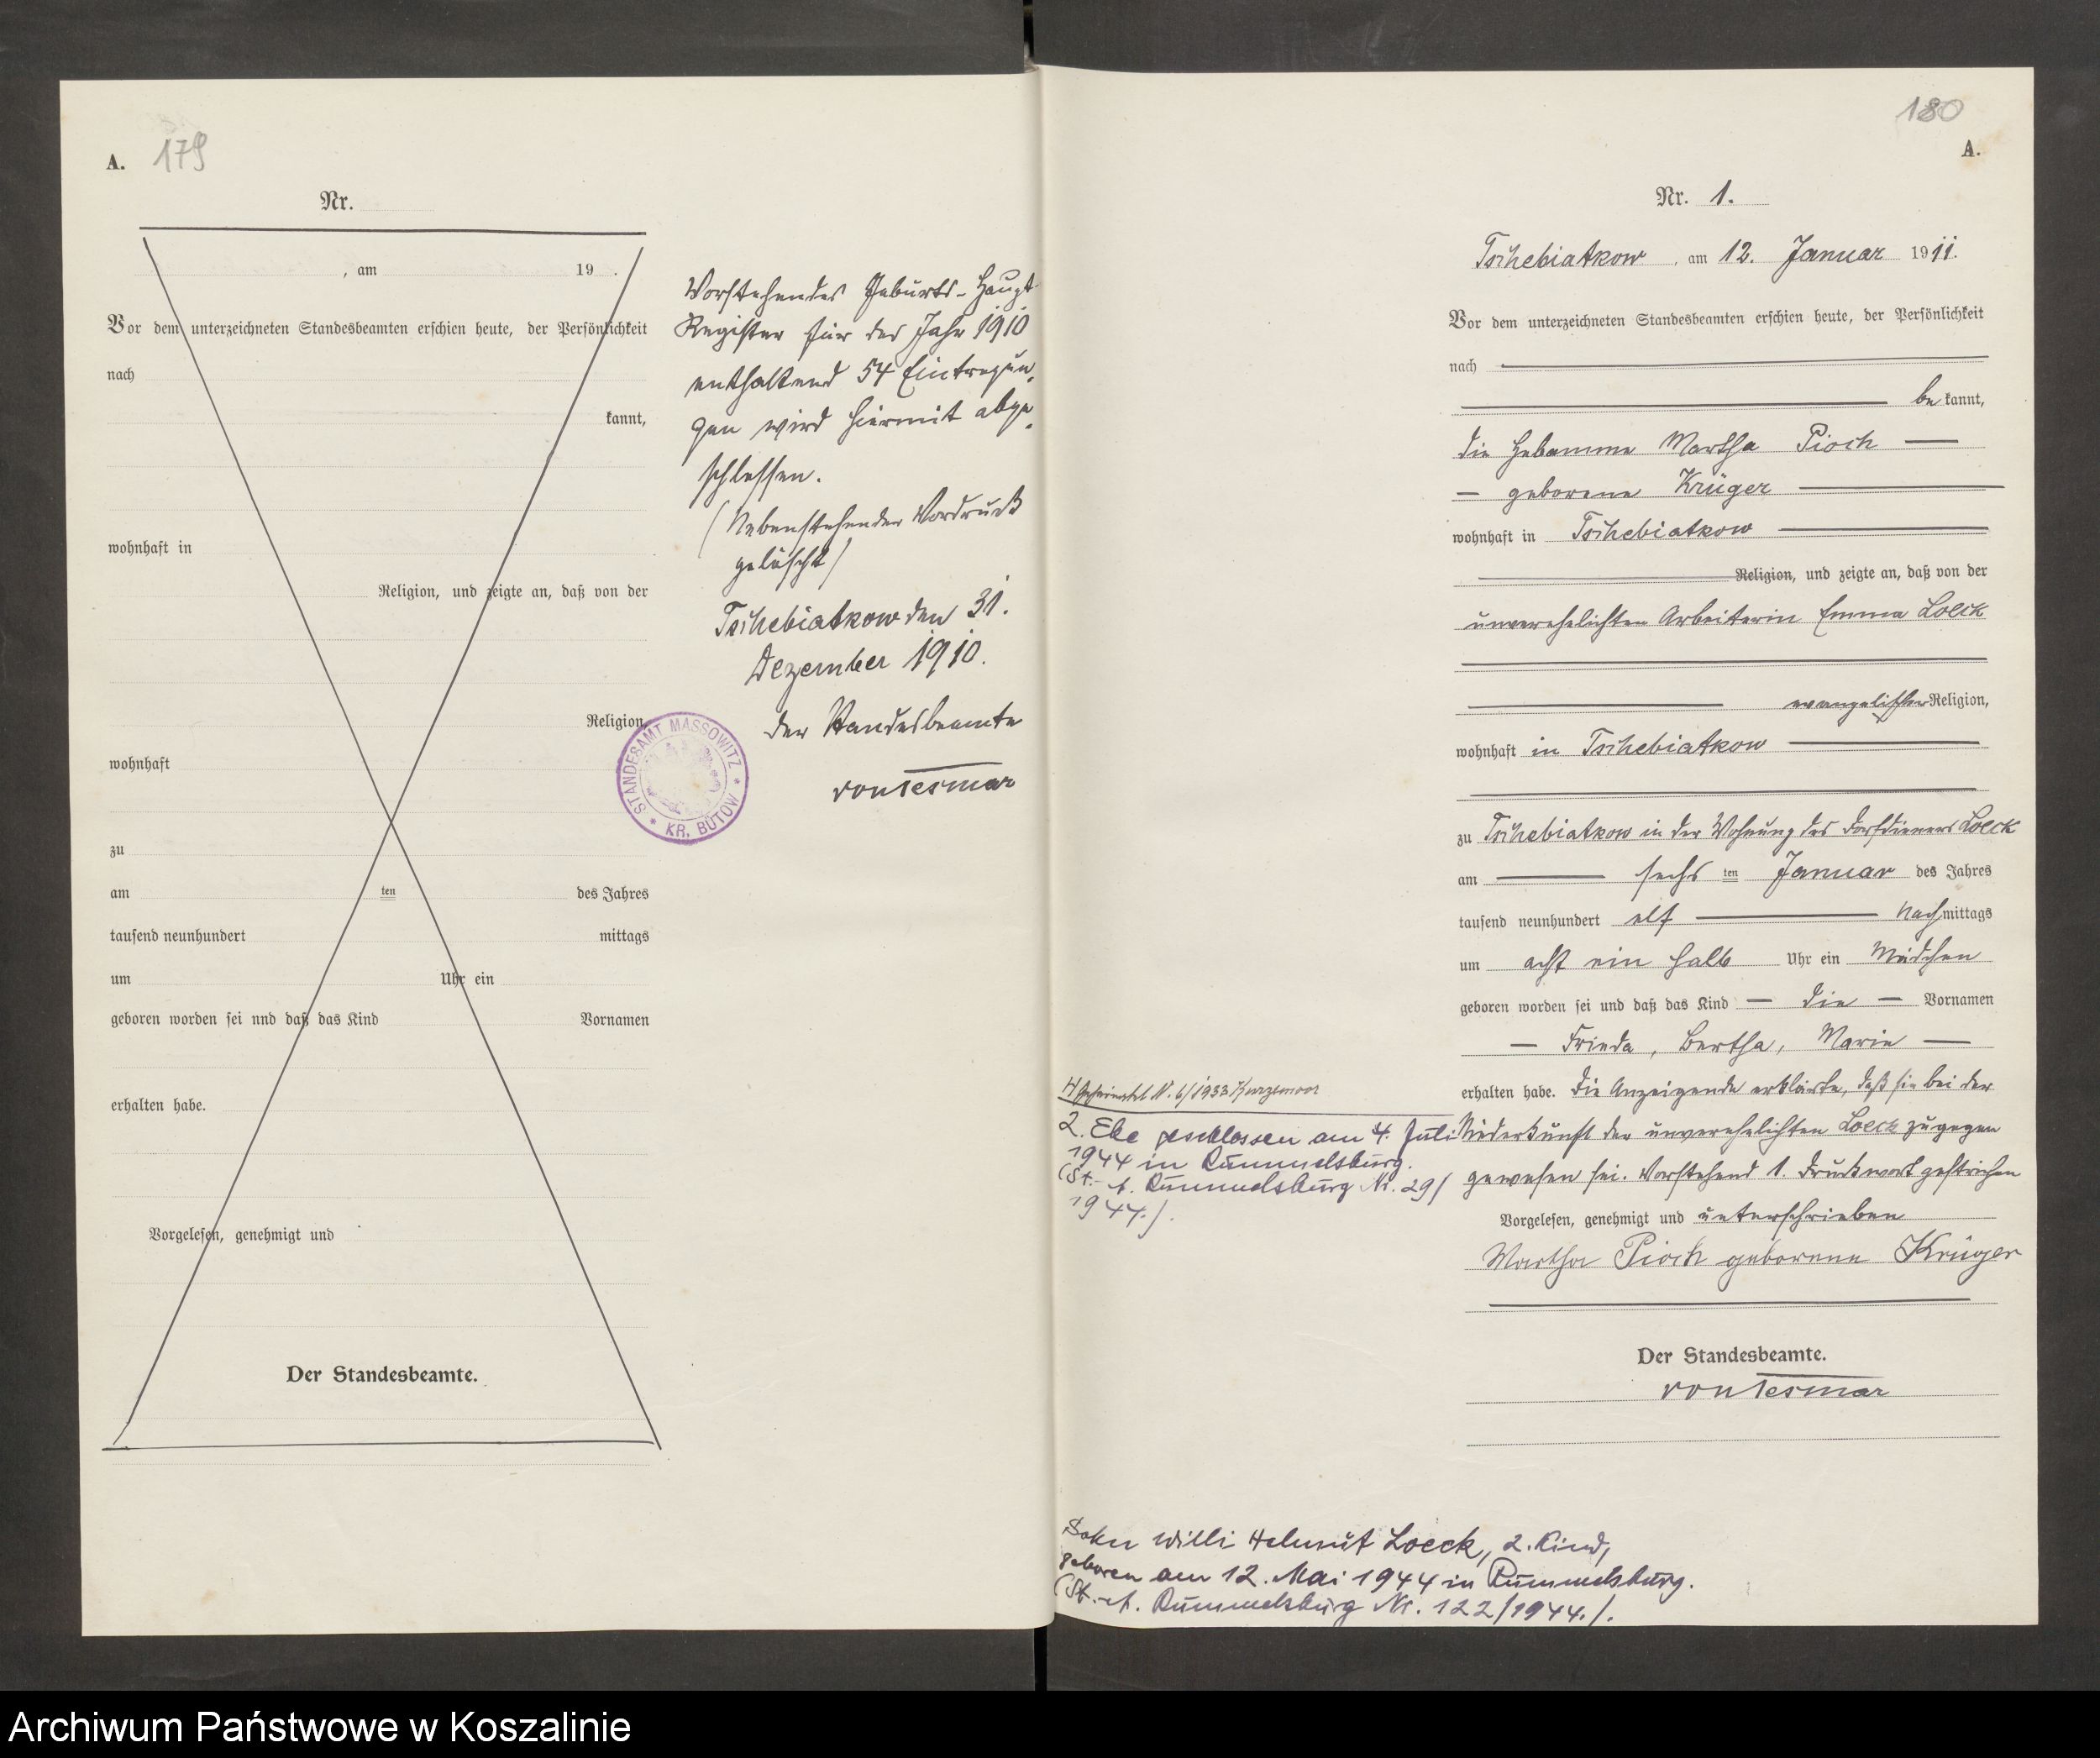 A. 179
Nr.
, am 19 .
Vor dem unterzeichneten Standesbeamten erschien heute, der Persönlichkeit
nach
kannt,
wohnhaft in
Religion, und zeigte an, daß von der
Religion,
wohnhaft
zu
am ten des Jahres
tausend neunhundert mittags
um Uhr ein
geboren worden sei nnd daß das Kind Vornamen
erhalten habe.
Vorgelesen, genehmigt und
Der Standesbeamte.
Vorstehendes Geburts-Haupt
Register für das Jahr 1910
enthaltend 54 Eintragun-
gen wird hiermit abge-
schlossen.
(Nebenstehender Vordruck
gelöscht)
Tschebiatkow den 31.
Dezember 1910.
Der Standesbeamte
von Tesmar
STANDESAMT MASSOWITZ * KR. BÜTOW *
180
A.
Nr. 1.
Tschebiatkow, am 12. Januar 1911.
Vor dem unterzeichneten Standesbeamten erschien heute, der Persönlichkeit
nach
be kannt,
die Hebamme Martha Pioch
geborene Krüger
wohnhaft in Tschebiatkow
Religion, und zeigte an, daß von der
unverehelichten Arbeiterin Emma Loeck
evangelischer Religion,
wohnhaft in Tschebiatkow
zu Tschebiatkow in der Wohnung des Dorfdieners Loeck
am sechs ten Januar des Jahres
tausend neunhundert elf Nachmittags
um acht ein halb Uhr ein Mädchen
geboren worden sei und daß das Kind die Vornamen
Frieda, Bertha, Marie
erhalten habe. Die Anzeigende erklärte, daß sie bei der
Niederkunft der unverehelichten Loeck zugegen
gewesen sei. Vorstehend 1. Druckwort gestrichen
Vorgelesen, genehmigt und unterschrieben
Martha Pioch geborene Krüger
Der Standesbeamte.
von Tesmar
H Geheiratet N. 6/1933
2. Ehe geschlossen am 4. Juli
1944 in Rummelsburg.
(St.-A. Rummelsburg Nr. 29/
1944.).
Sohn Willi Helmut Loeck, 2. Kind,
geboren am 12. Mai 1944 in Rummelsburg.
(St.-A. Rummelsburg Nr. 122/1944.).
Archiwum Państwowe w Koszalinie